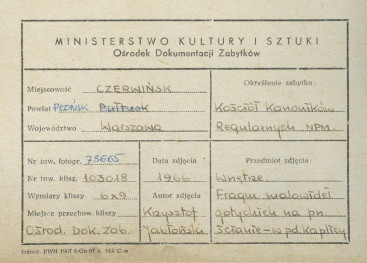 MINISTERSTWO KULTURY I SZTUKI
Ośrodek Dokumentacji Zabytków
Miejscowość CZERWIŃSK
Powiat PŁOŃSK Pułtusk
Województwo Warszawa
Określenie zabytku:
Kościół Kanoników
Regularnych NPM.
Nr inw. fotogr. 73665
Nr inw. klisz. 103018
Wymiary kliszy 6x9
Miejsce przechow. kliszy
Ośrod. Dok. Zab.
Data zdjęcia
1966
Autor zdjęcia
Krzysztof
Jabłoński
Przedmiot zdjęcia:
wnętrze
Fragm malowideł
gotyckich na pn.
ścianie - w pd. kaplicy